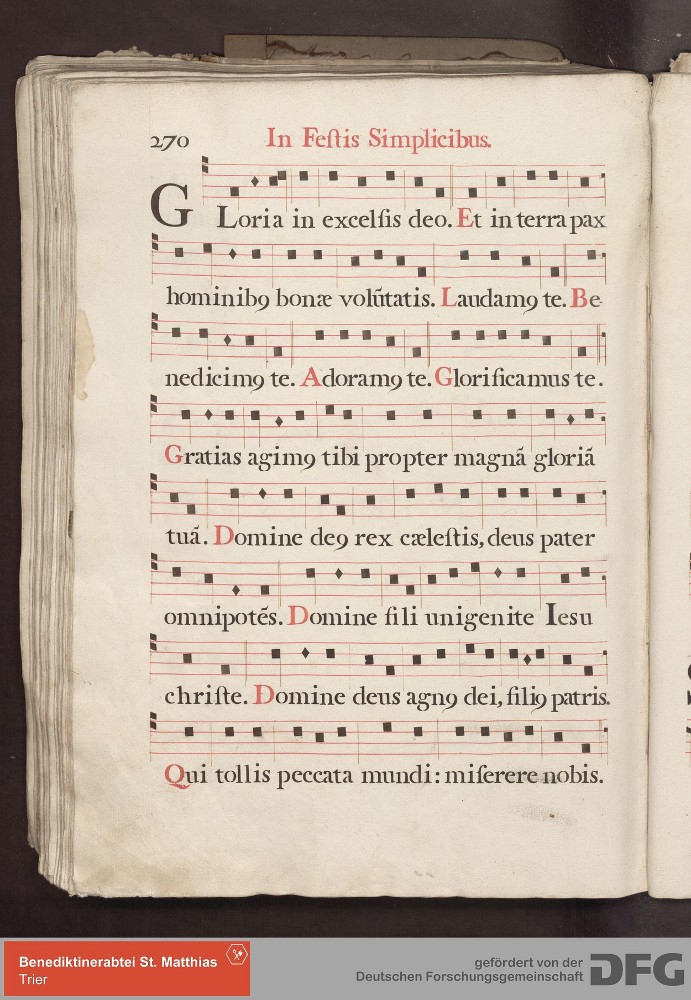 270 In Feſtis Simplicibus.
GLoria in excelſis deo. Et in terra pax
hominibꝯ bonæ volũtatis. Laudamꝯ te. Be-
nedicimꝯ te. Adoramꝯ te. Glorificamus te.
Gratias agimꝯ tibi propter magnã gloriã
tuã. Domine deꝯ rex cæleſtis, deus pater
omnipotẽs. Domine fili unigenite Iesu
chriſte. Domine deus agnꝯ dei, filiꝯ patris.
Qui tollis peccata mundi: miſerere nobis.
Benediktinerabtei St. Matthias
Trier
gefördert von der
Deutschen Forschungsgemeinschaft
DFG